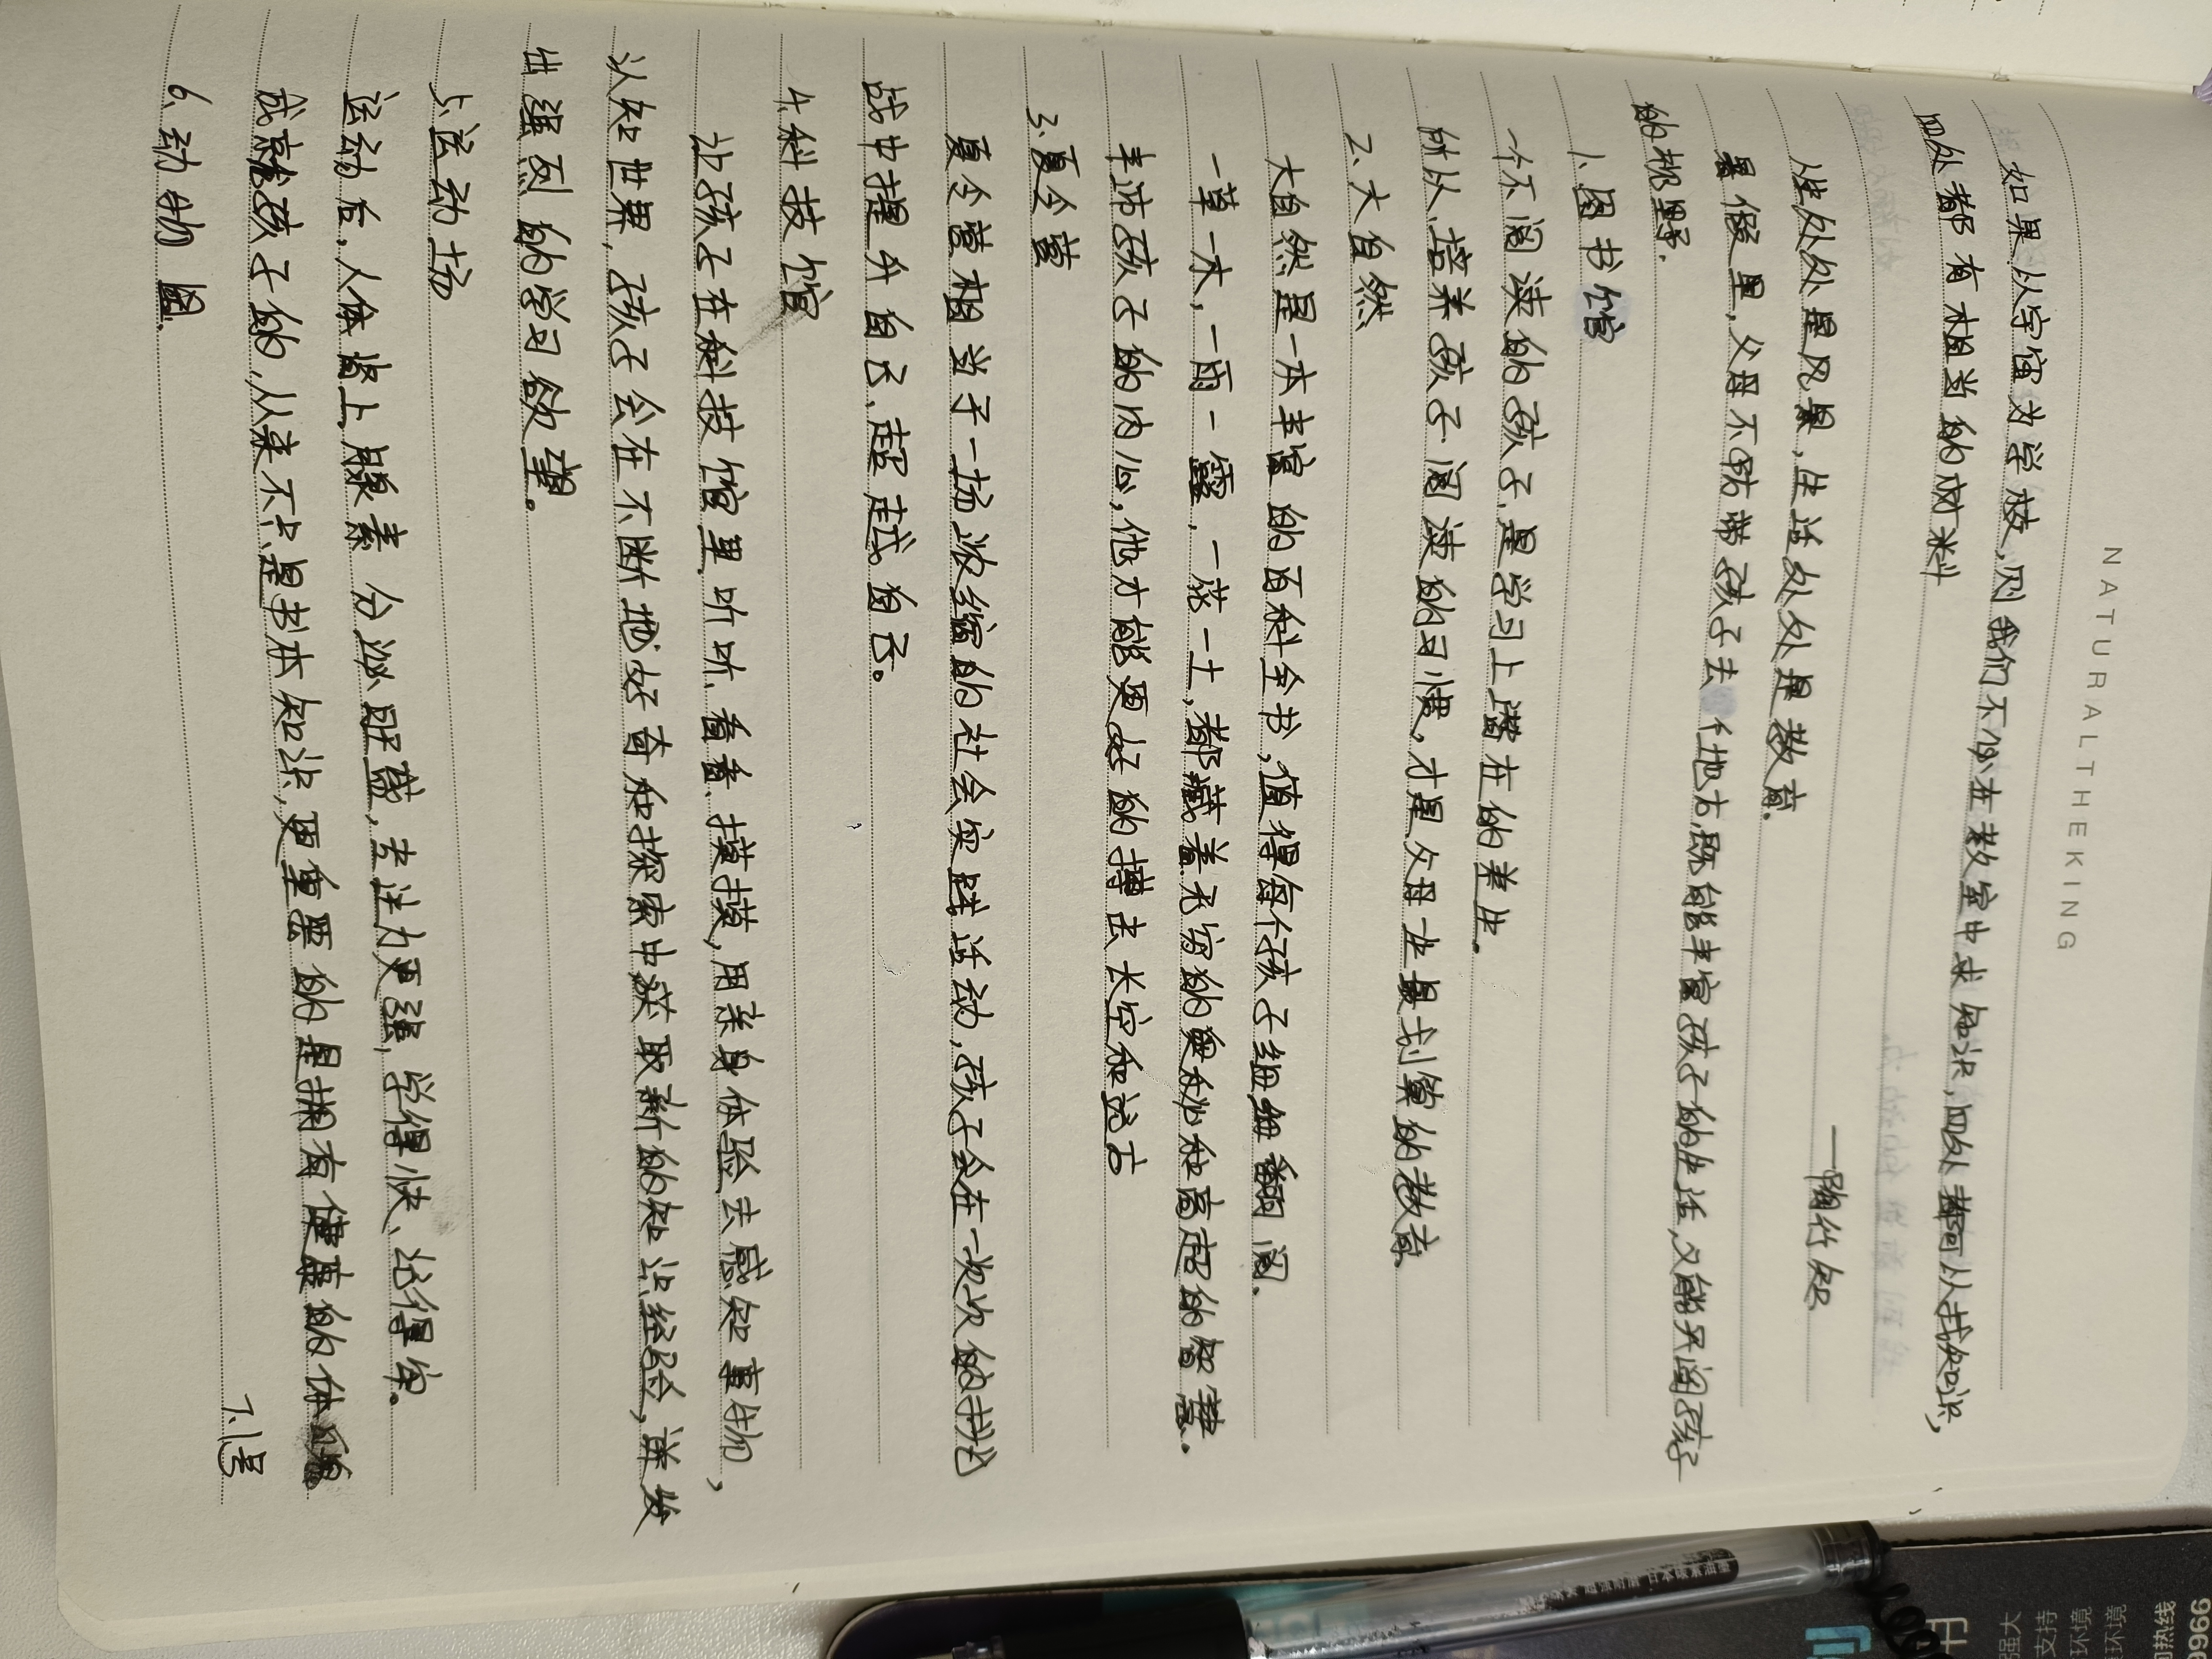 NATURALTHEKING
如果以宇宙为学校,则我们不必在教室中求知识,四处都可以找知识,
四处都有相当的材料
——陶行知
人生处处是风景,生活处处是教育.
暑假里,父母不妨带孩子去 个地方,既能丰富孩子的生活,又能开阔孩子
的视野.
1.图书馆
一个不阅读的孩子,是学习上潜在的差生.
所以,培养孩子阅读的习惯,才是父母一生最划算的教育
2、大自然
大自然是一本丰富的百科全书,值得每个孩子细细翻阅.
一草一木,一雨一露,一花一土,都藏着无穷的奥秘和高超的智慧.
丰沛孩子的内心,他才能更好的搏击长空和远方
3.夏令营
夏令营相当于一场浓缩的社会实践活动,孩子会在一次次的挑
战中提升自己,超越自己。
4.科技馆
让孩子在科技馆里,听听、看看、摸摸,用亲身体验去感知事物,
认知世界,孩子会在不断地好奇和探索中获取新的知识经验,并发
出强烈的学习欲望。
5.运动场
运动后,人体肾上腺素分泌旺盛,专注力更强,学得快、记得牢.
成就孩子的,从来不只是书本知识,更重要的是拥有健康的体魄
6、动物园.
7.1号
日本碳素油墨
强大
支持
环境
境环境
热线
9966